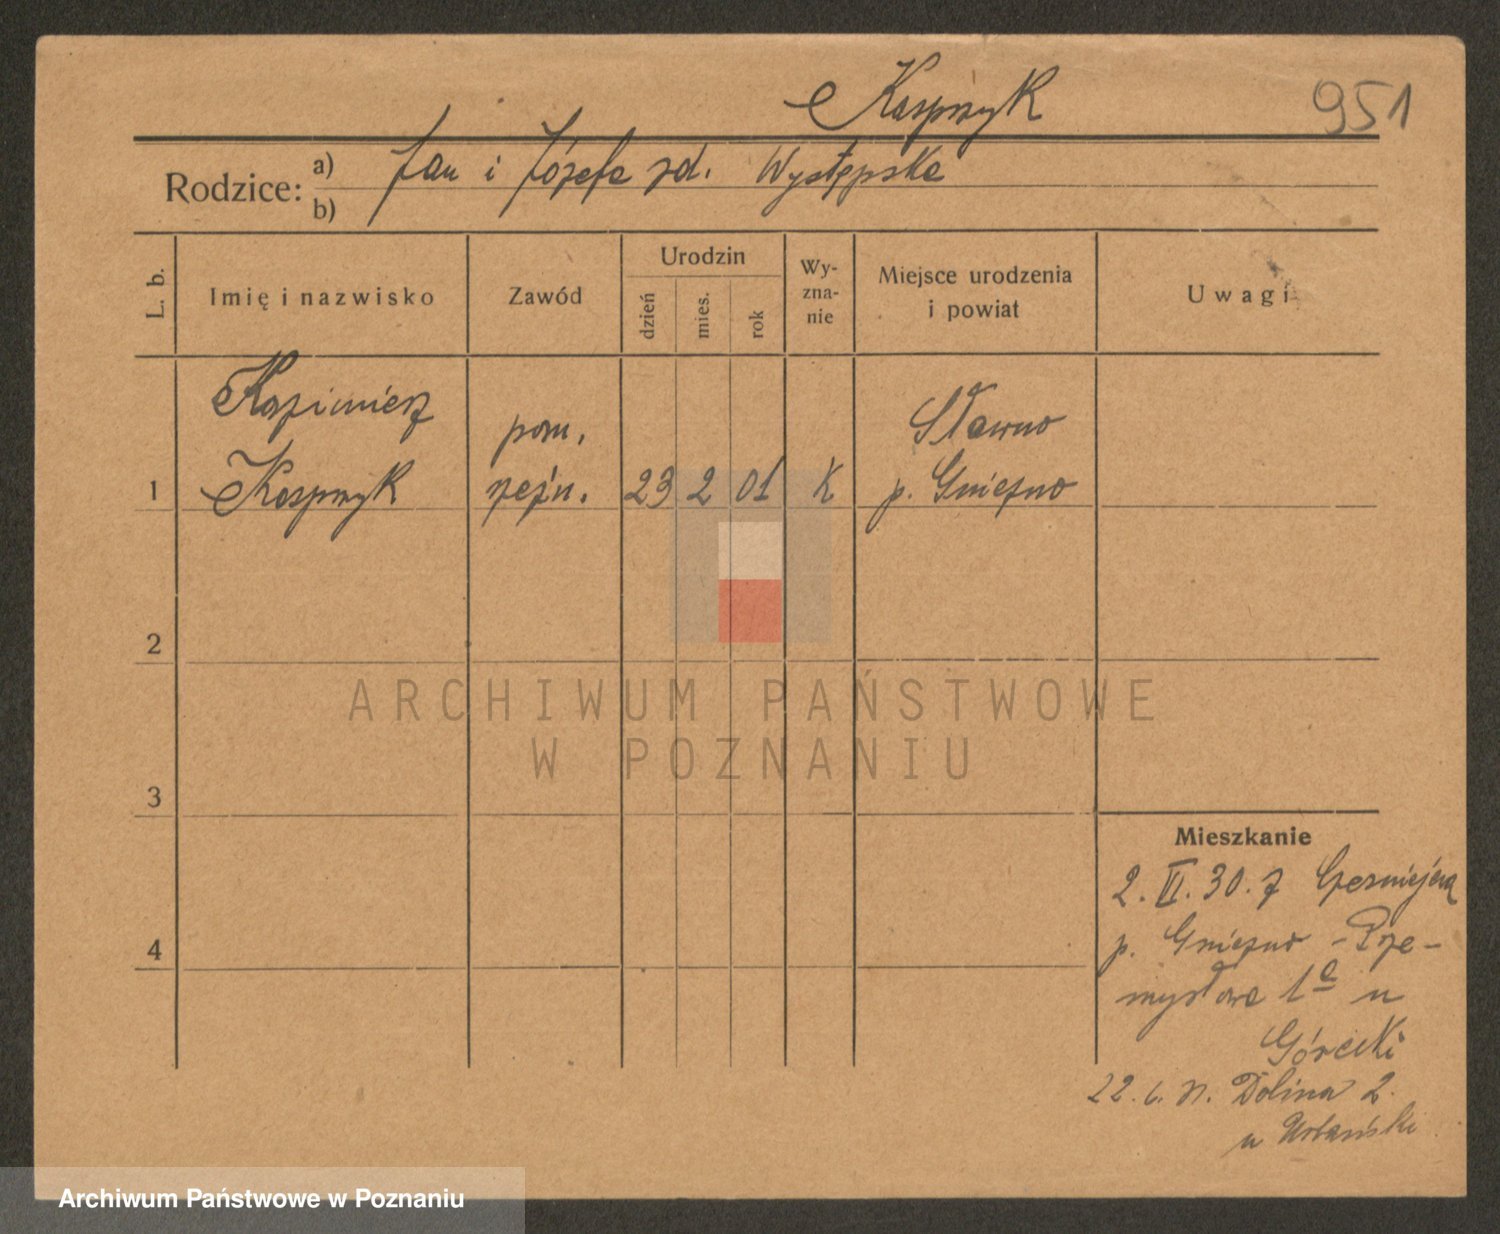 Kasprzyk
951
Rodzice: a) Jan i Józefa zd. Występska
b)
L. b.
Imię i nazwisko
Zawód
Urodzin
dzień
mies.
rok
Wy-
zna-
nie
Miejsce urodzenia
i powiat
Uwagi
Kazimierz
pom.
Sławno
1 Kasprzyk rzeźn. 23 2 01 K p. Gniezno
2
ARCHIWUM PAŃSTWOWE
W POZNANIU
3
Mieszkanie
2. VI. 30. z
p. Gniezno - Prze-
4
mysłowa 1a u
Górecki
22. 6. Dolina 2.
u Urbański
Archiwum Państwowe w Poznaniu